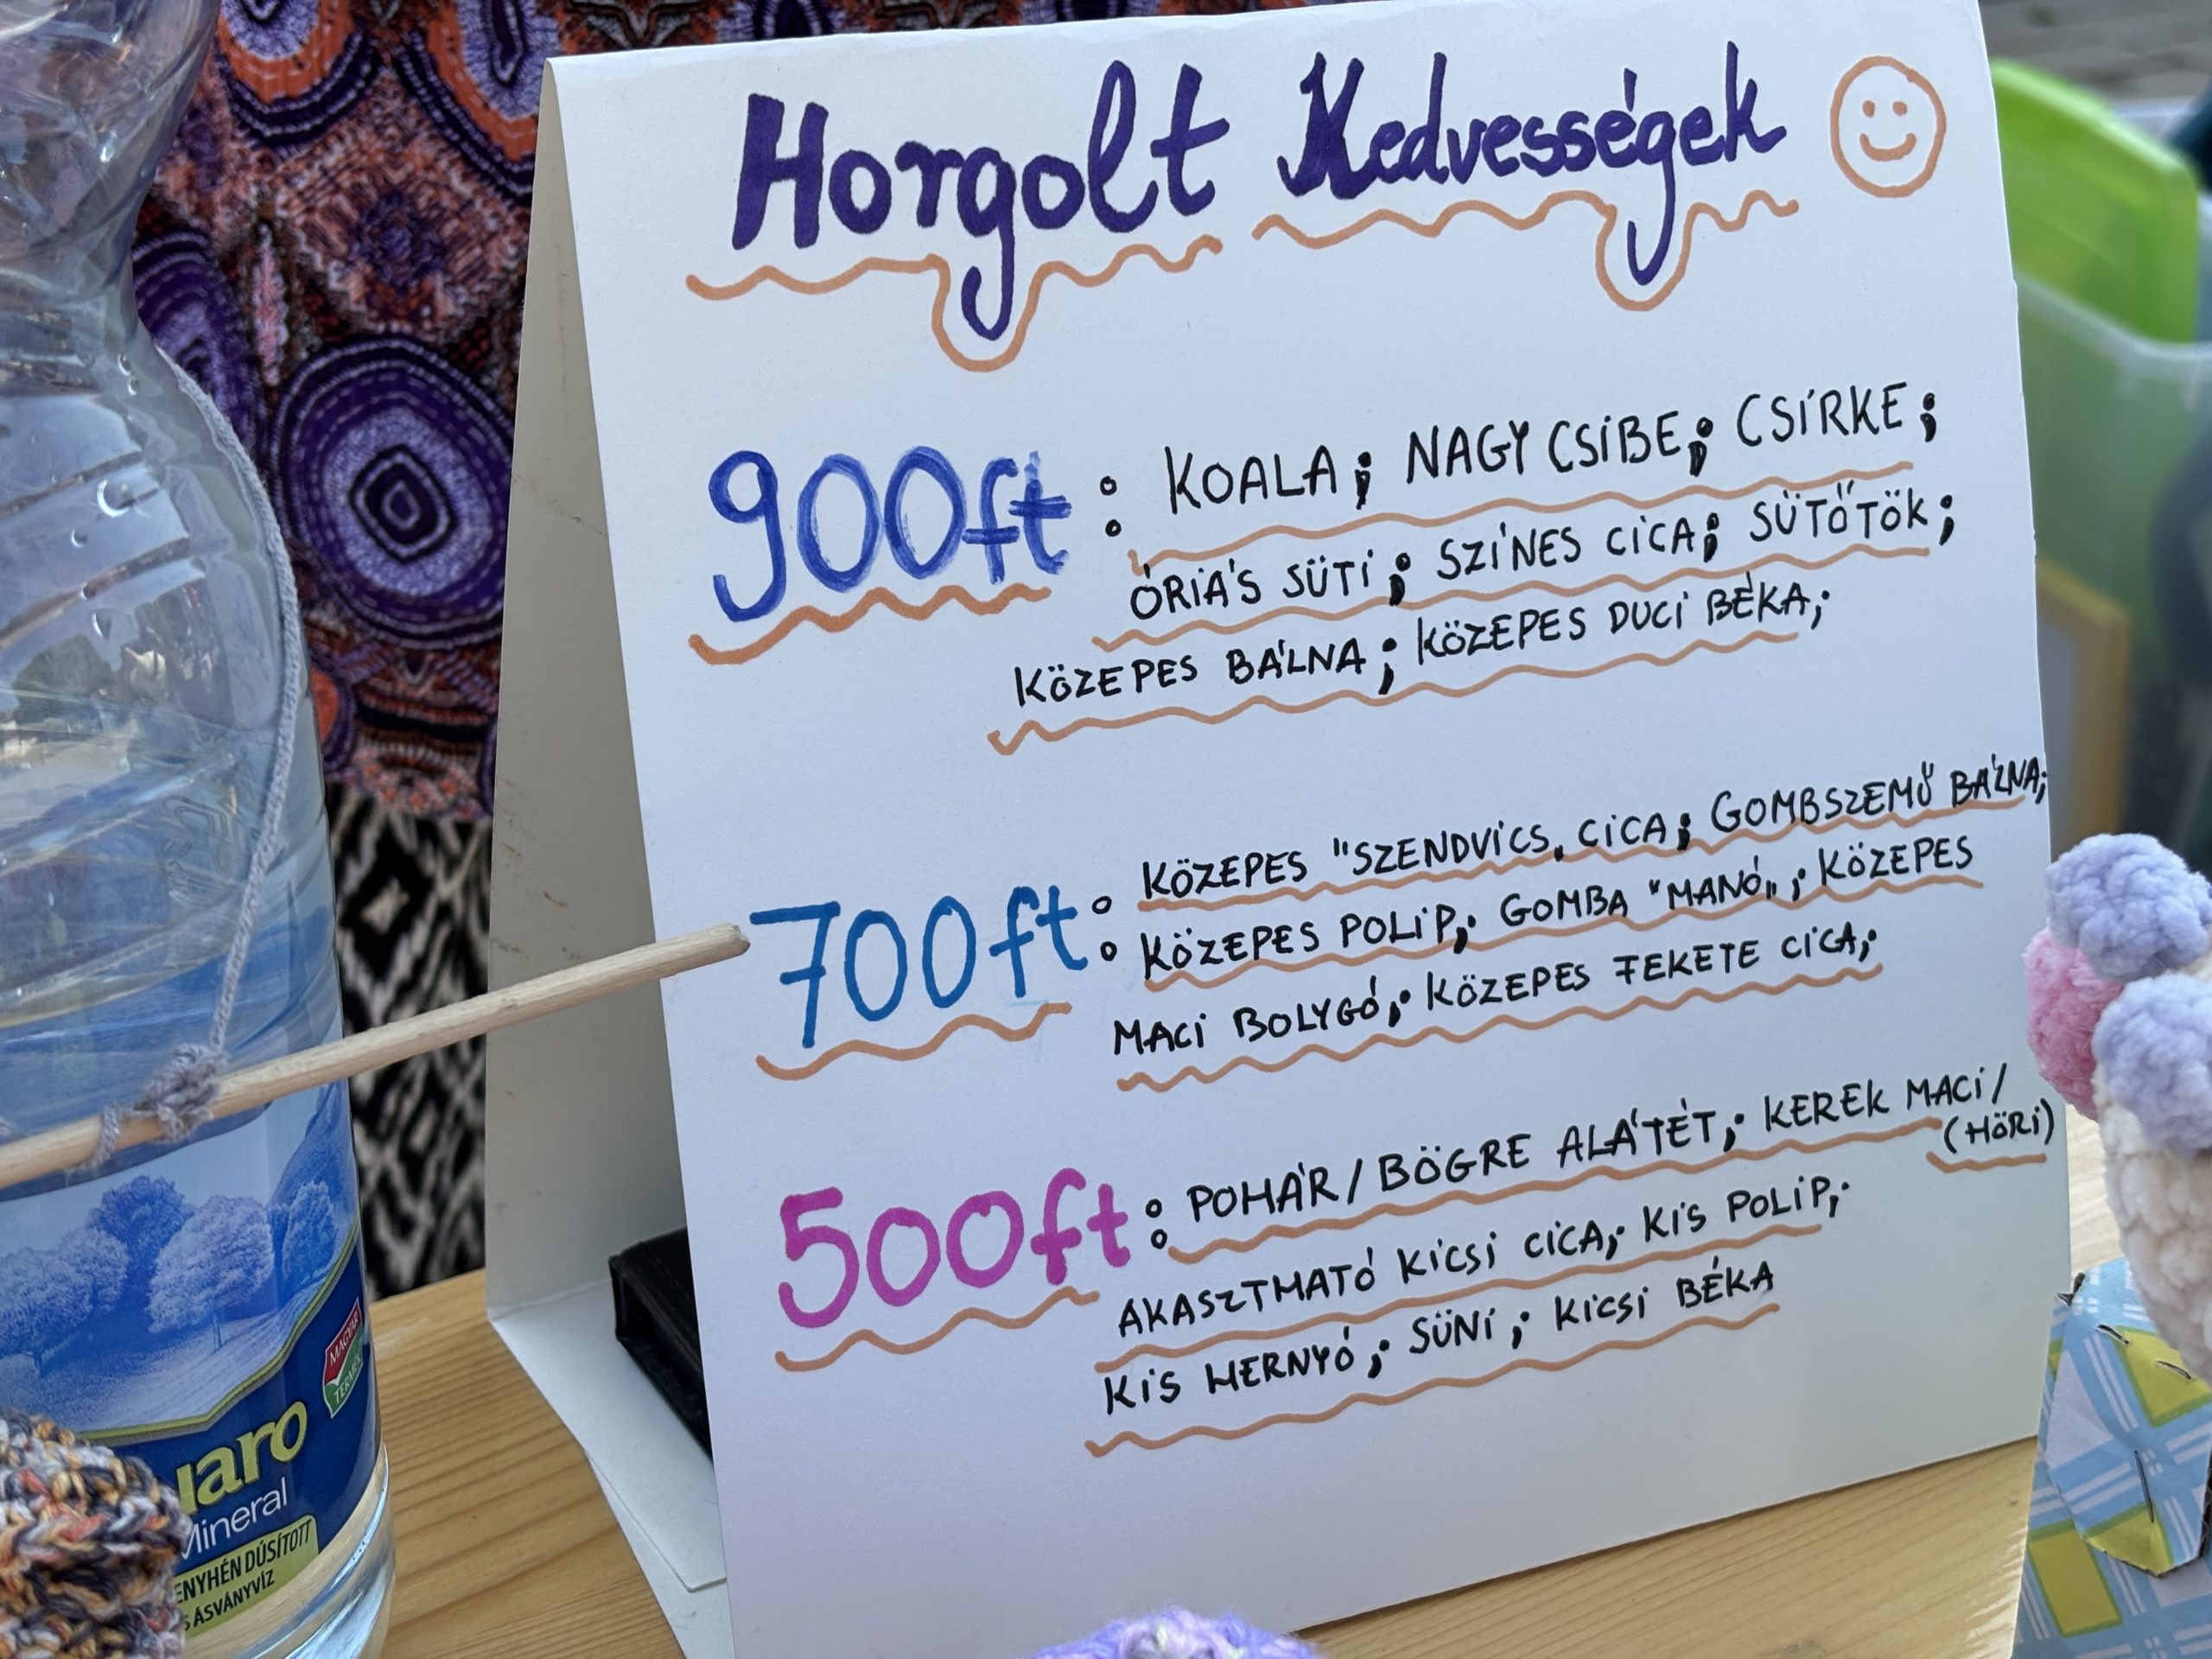 Horgolt Kedvességek
900ft: KOALA; NAGY CSIBE; CSIRKE;
ÓRIÁS SÜTI; SZÍNES CICA; SÜTŐTÖK;
KÖZEPES BÁLNA; KÖZEPES DUCI BÉKA;
700ft: KÖZEPES "SZENDVICS„ CICA; GOMBSZEMŰ BÁLNA;
KÖZEPES POLIP; GOMBA "MANÓ„; KÖZEPES
MACI BOLYGÓ; KÖZEPES FEKETE CICA;
500ft: POHÁR/BÖGRE ALÁTÉT; KEREK MACI/
(HÖRI)
AKASZTMATÓ KICSI CICA; KIS POLIP;
KIS HERNYÓ; SÜNI; KICSI BÉKA
MAGYAR
TERMÉK
Mineral
DÚSÍTOTT
ÁSVÁNYVÍZ